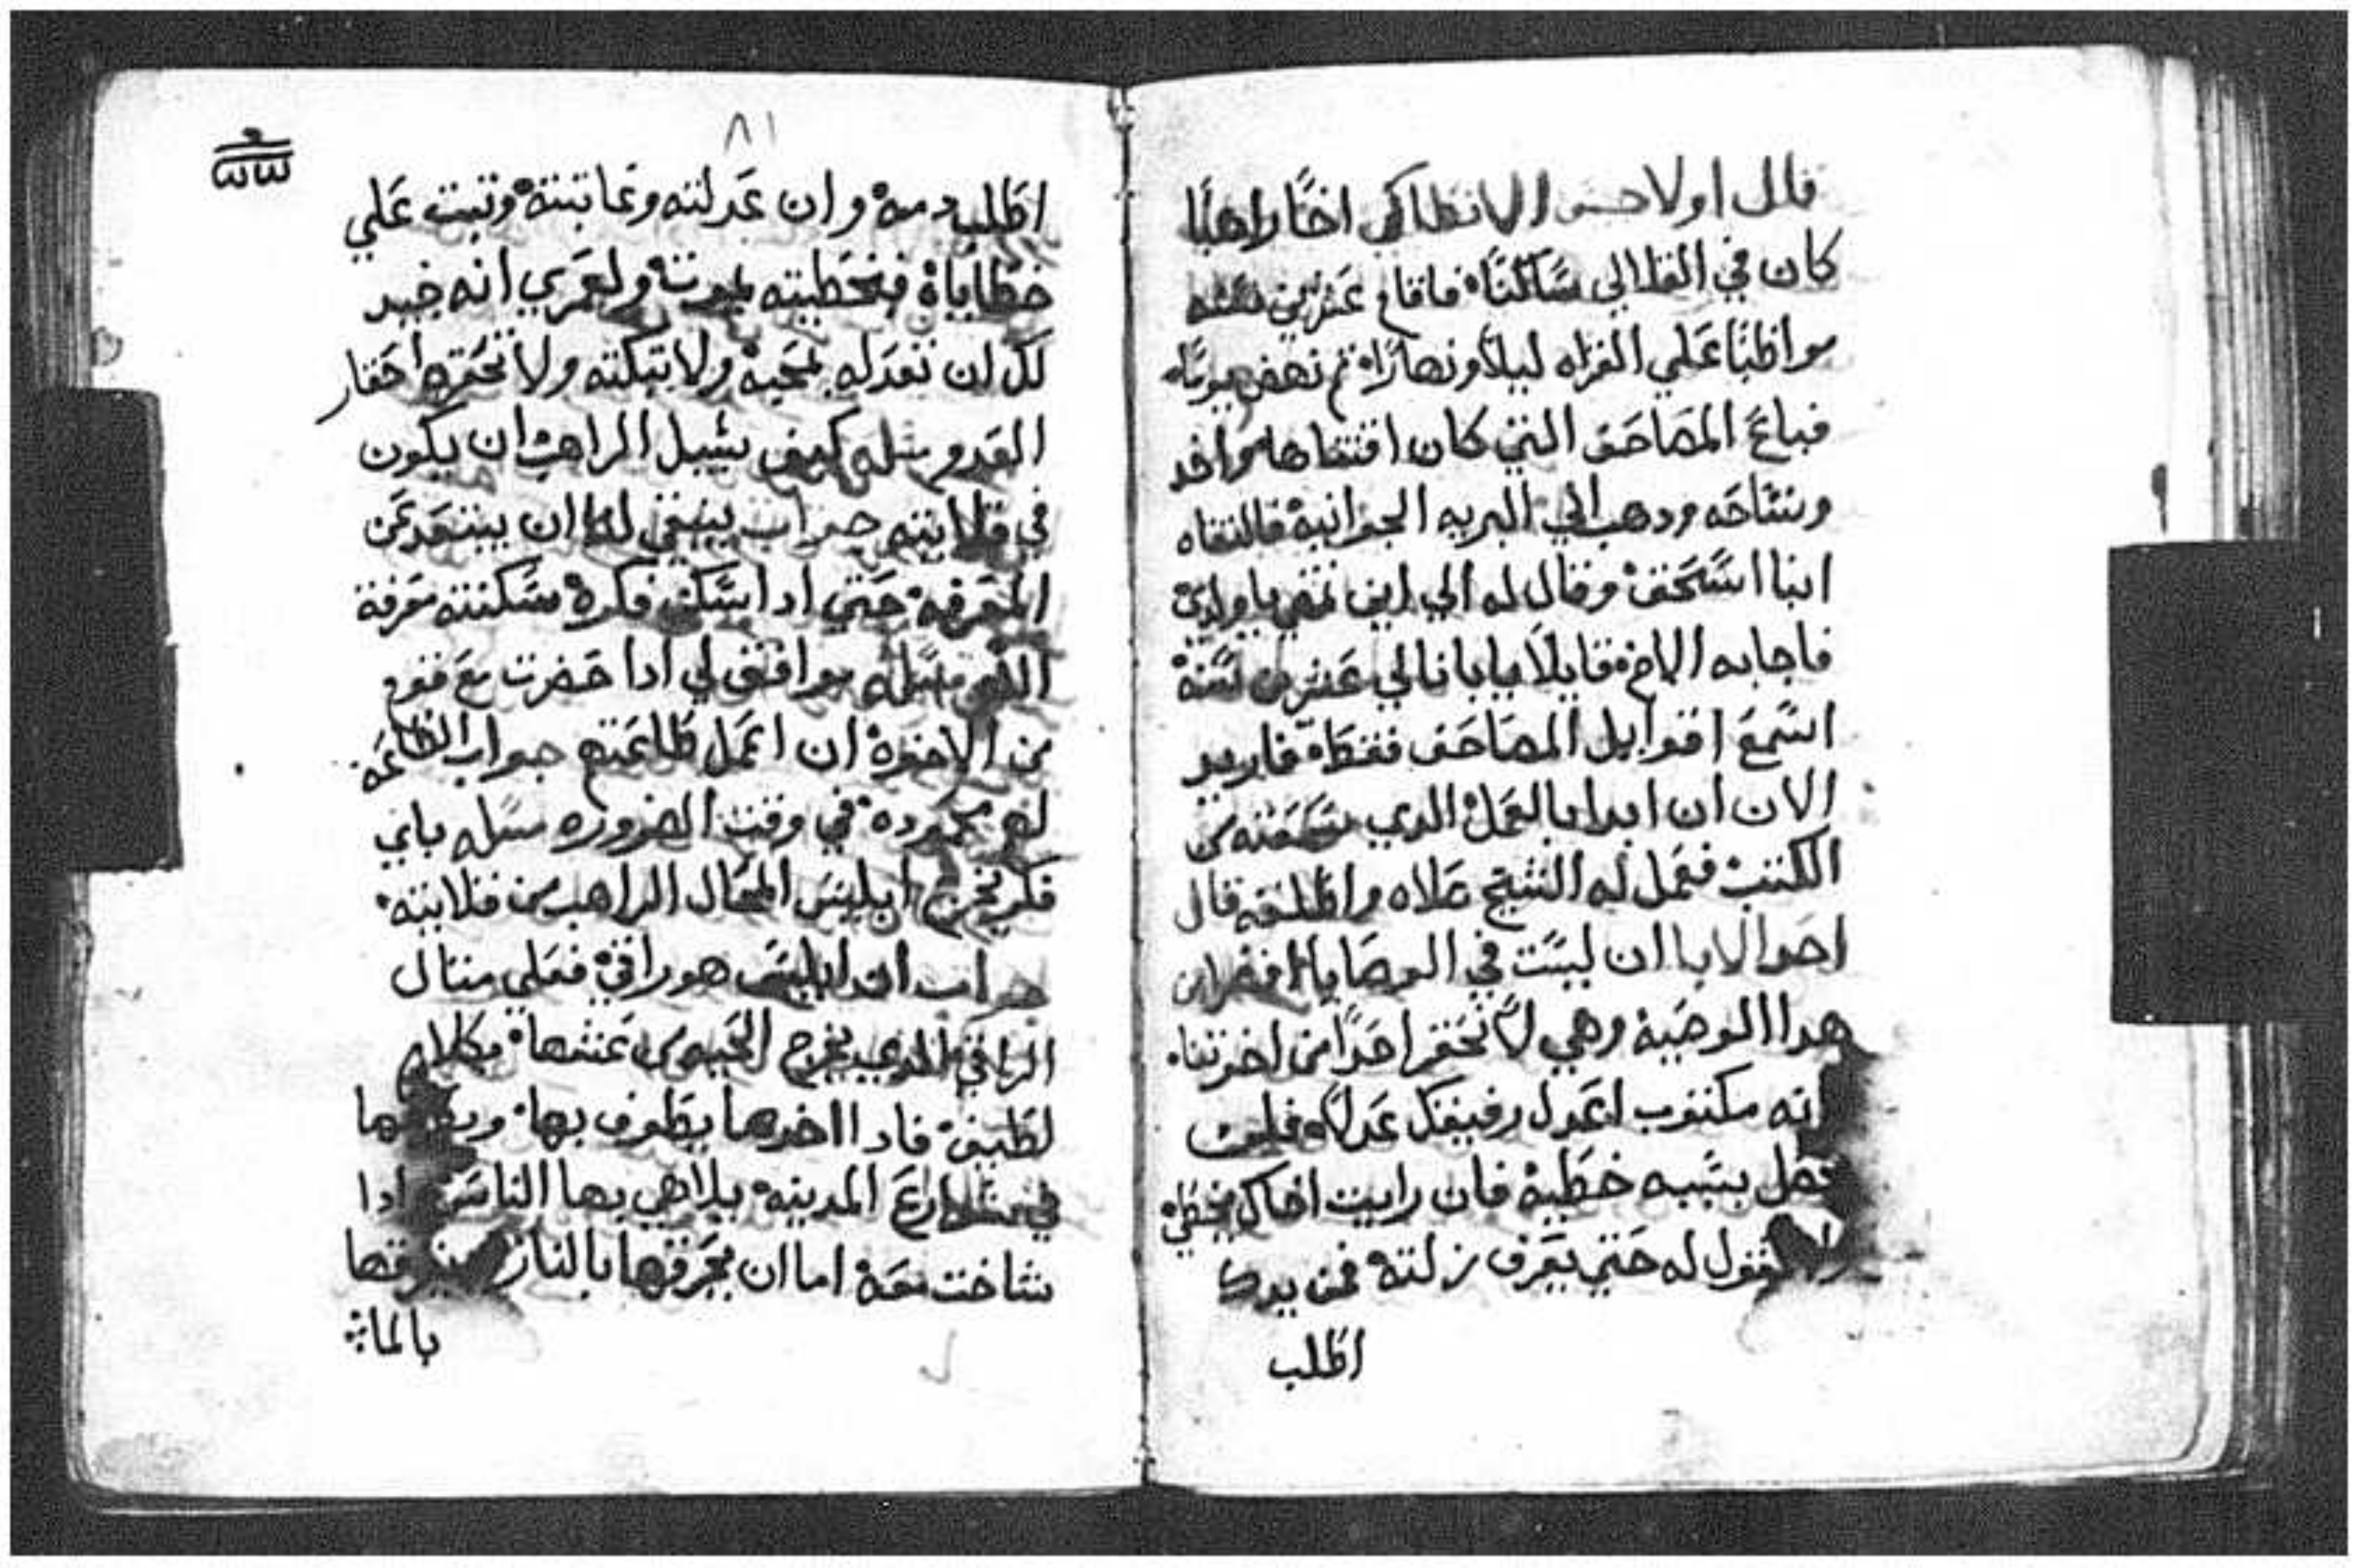 قال اولا حسو الانطاكي اخًا راهبًا
كان في القلالي ساكنًا فاقام عشرين سنه
مواظبًا علي القراه ليلًا ونهارًا ثم نهض يومًا
فباع المصاحف التي كان اقتناها واخد
وشاحه ودهب الي البريه الجوانية فالتقاه
انبا اسحق وقال له الي اين تمضي يا ولدي
فاجابه الاخ قايلًا يا بانا لي عشرين سنة
اسمع اقوايل المصاحف فقط فاريد
الان ان ابدا بالعمل الدي سمعته من
الكتب فعمل له الشيخ صلاه واطلقه قال
احد الابا ان ليست في الوصايا
هدا الوصية وهي لا تحقر احدًا من اخوتنا
انه مكتوب اعدل رفيقك عدلًا فليس
بسببه خطية فان رايت اخاك يخطي
تقول له حتي يعرف زلته فمن يدك
اطلب
٨١
اطلب دمه وان عدلته وعاتبته وتبت علي
خطاياة فبخطيته يموت ولعمري انه جيد
لك ان تعدله بمحبة ولا تبكته ولا تحقره احقار
العدو سله كيف سبيل الراهب ان يكون
في قلايته جواب ينبغي له ان يبتعد عن
المعرفه حتي ادا سكن فكره سكنته معرفة
سله يوافق لي ادا حضرت مع قوم
من الاخوة ان اعمل طاعتهم جواب الطاعة
لهم محموده في وقت الضروره سله باي
فكر يخرج ابليس المحال الراهب من قلايته
جواب ان ابليس هو راقي فعلي مثال
الراقي الدي يخرج الحيه من عشها بكلام
لطيف فادا اخدها يطوف بها
في شوارع المدينه يلاهي بها الناس ادا
شاخت معه اما ان يحرقها بالنار
بالما